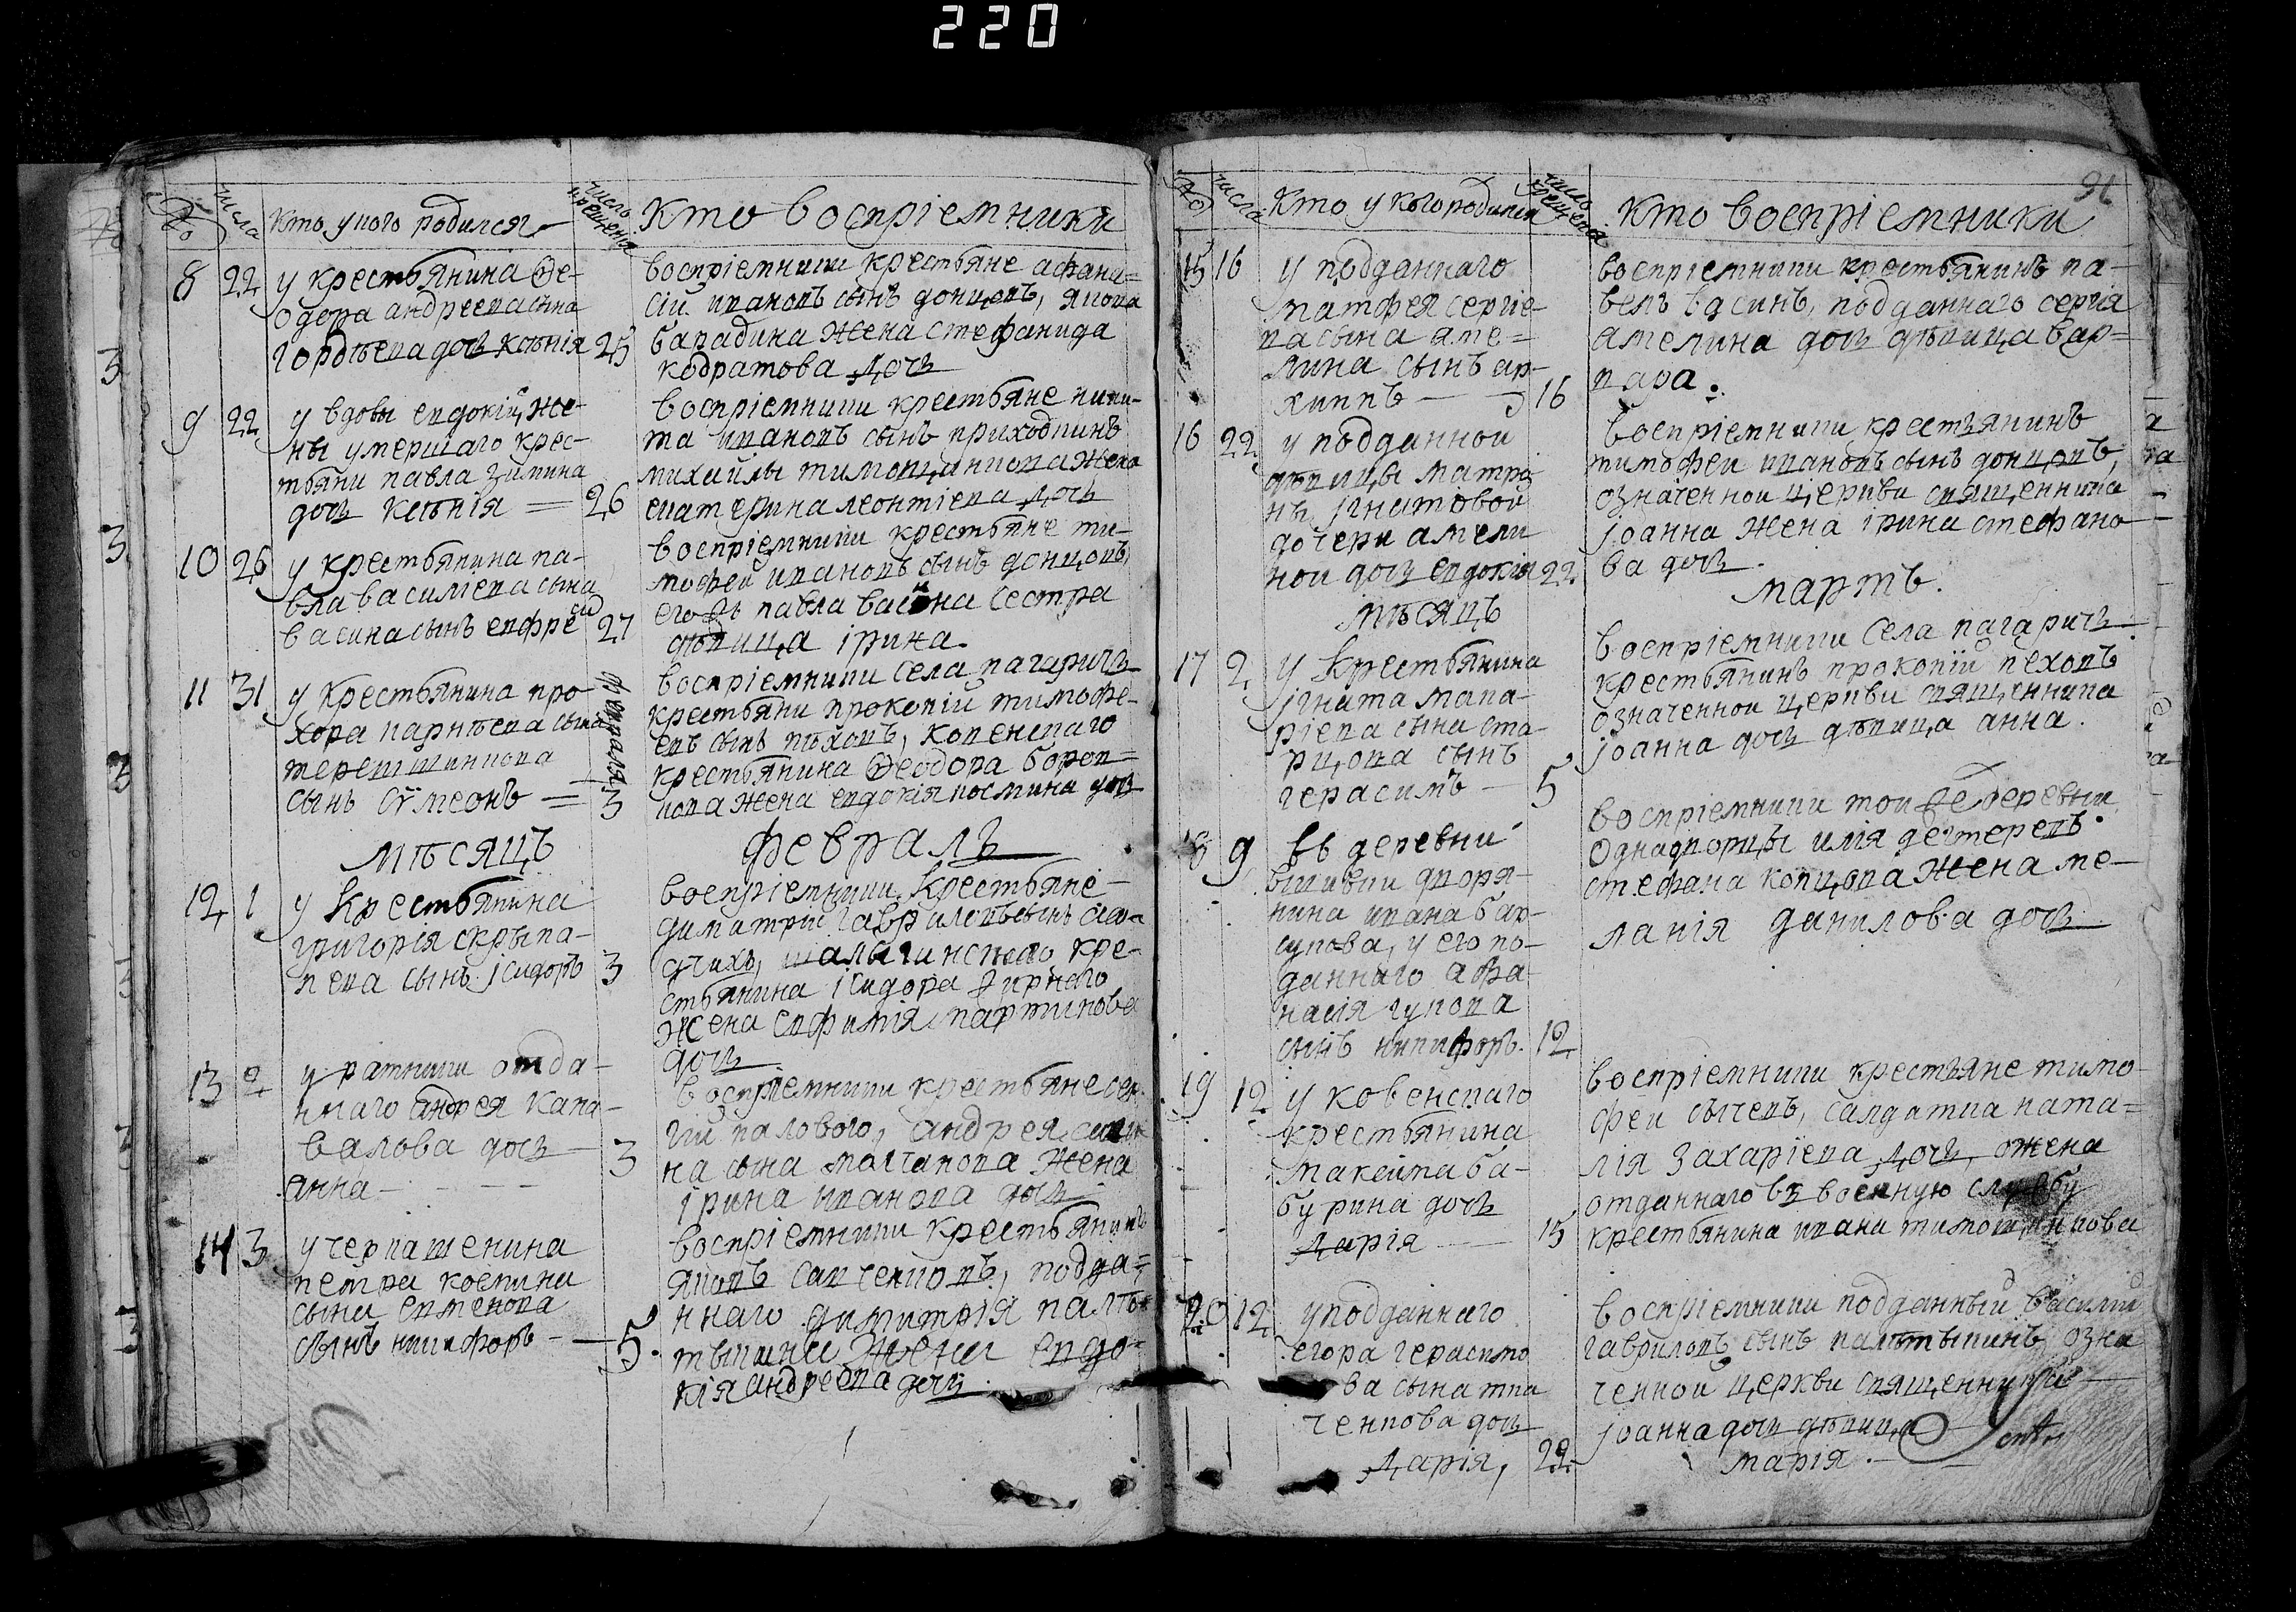 220
№ числа кто у кого родился число крещенїя кто воспрїемники
8 22 у крестьянина Ѳе-
одора андреева сына
гордѣева дочь ксѣнїя 25
воспрїемники крестьяне афана=
сїй ивановъ сынъ донцовъ, якова
барадина жена стефанида
кодратова дочь
9 22 у вдовы евдокїй же-
ны умершаго крес-
тьяни павла зимина
дочь ксѣнїя = 26
воспрїемники крестьяне ники-
та ивановъ сынъ приходкинъ
михайлы тимощникова жена
екатерина леонтїева дочь
10 26 у крестьянина па-
вла василїева сына
васина сынъ евфре 27
воспрїемники крестьяне ти-
мофеи ивановъ сынъ донцовъ,
его жъ павла васина сестра
дѣвица ірина.
11 31 у крестьянина про
хора карнѣева сына
терешинкова
сынъ сѵмеонъ = февраля 3
воспрїемники села пагаричь
крестьяни прокопїй тимофе-
евъ сынъ пѣховъ, ковенскаго
крестьянина Ѳеодора боров=
кова жена евдокїя космина дочь
мѣсяцъ февраль
12 1 у крестьянина
григорїя скрыпа-
чева сынъ ісидоръ 3
воспрїемники крестьяне
димитрїй гавриловъ сынъ
шалыгинскаго кре-
стьянина ісидора
жена евфимїя мартинова
дочь
13 2 у ратники отда-
ннаго андрея капа-
валова дочь 3
анна - - - -
воспрїемники крестьяне сер
гїй палового, андрея
на сына молчанова жена
ірина иванова дочь
14 3 у черкашенина
петра космина
сына евтенова
сынъ никифоръ - - 5.
воспрїемники крестьянинъ
яковъ савченковъ, подда=
ннаго димитрїя
жена евдо-
кїя андреева дочь.
91
№ числа кто у кого родился число крещенїя кто воспрїемники
15 16 у подданнаго
матфея сергїе-
ва сына аме=
лина сынъ ар-
хиппъ — 16
воспрїемники крестьянинъ па-
велъ васинъ, подданнаго сергїя
амелина дочь дѣвица вар=
вара.
16 22 у подданной
дѣвицы матро
ны ігнатовой
дочери амели
ной дочь евдокїя 22
воспрїемники крестьянинъ
тимофеи ивановъ сынъ донцовъ,
означенной церкви священника
іоанна жена ірина стефано-
ва дочь.
мѣсяцъ мартъ.
17 2 у крестьянина
ігната мака-
рїева сына ста-
рцова сынъ
герасимъ - 5
воспрїемники села пагаричь
крестьянинъ прокопїй пеховъ
означенной церкви священника
іоанна дочь дѣвица анна.
18 9 въ деревни
вшивки дворя-
нина ивана бар-
сукова, у его по-
даннаго афа-
насїя гукова
сынъ никифоръ. 12
воспрїемники той же деревни
однадворцы илїя дегтеревъ.
стефана копцова жена ме-
ланїя данилова дочь
19 12 у ковенскаго
крестьянина
максима ба-
бурина дочь
дарїя — 15
воспрїемники крестьяне тимо
феи сычевъ, салдатка ната=
лїя захарїева дочь, жена
отданнаго въ военную службу
крестьянина ивана тимощникова
20 12 у подданнаго
егора герасимо
ва сына тка
ченкова дочь
дарїя, 22.
воспрїемники подданный василїй
гавриловъ сынъ палѣтыкинъ озна
ченной церкви священника
іоанна дочь дѣвица
марїя.